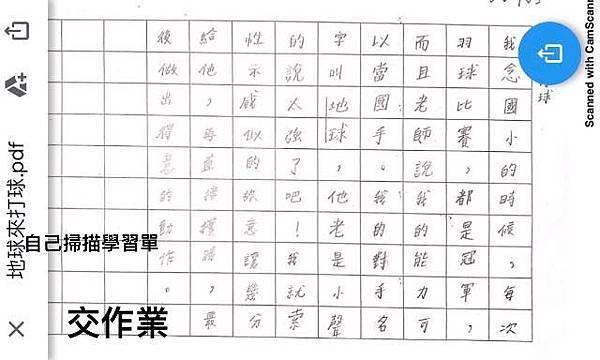 Scanned with CamScan
球
我念國小的時候，每次
羽球比賽，都是冠軍，
而且老師說我的能力可
以當國手。我的對手名
字叫地球，他老是小聲
的說太強了吧！我就索
性示威似的故意讓幾分
給他，再直接獲勝，最
後做出得意的動作。
地球來打球.pdf
自己掃描學習單
交作業